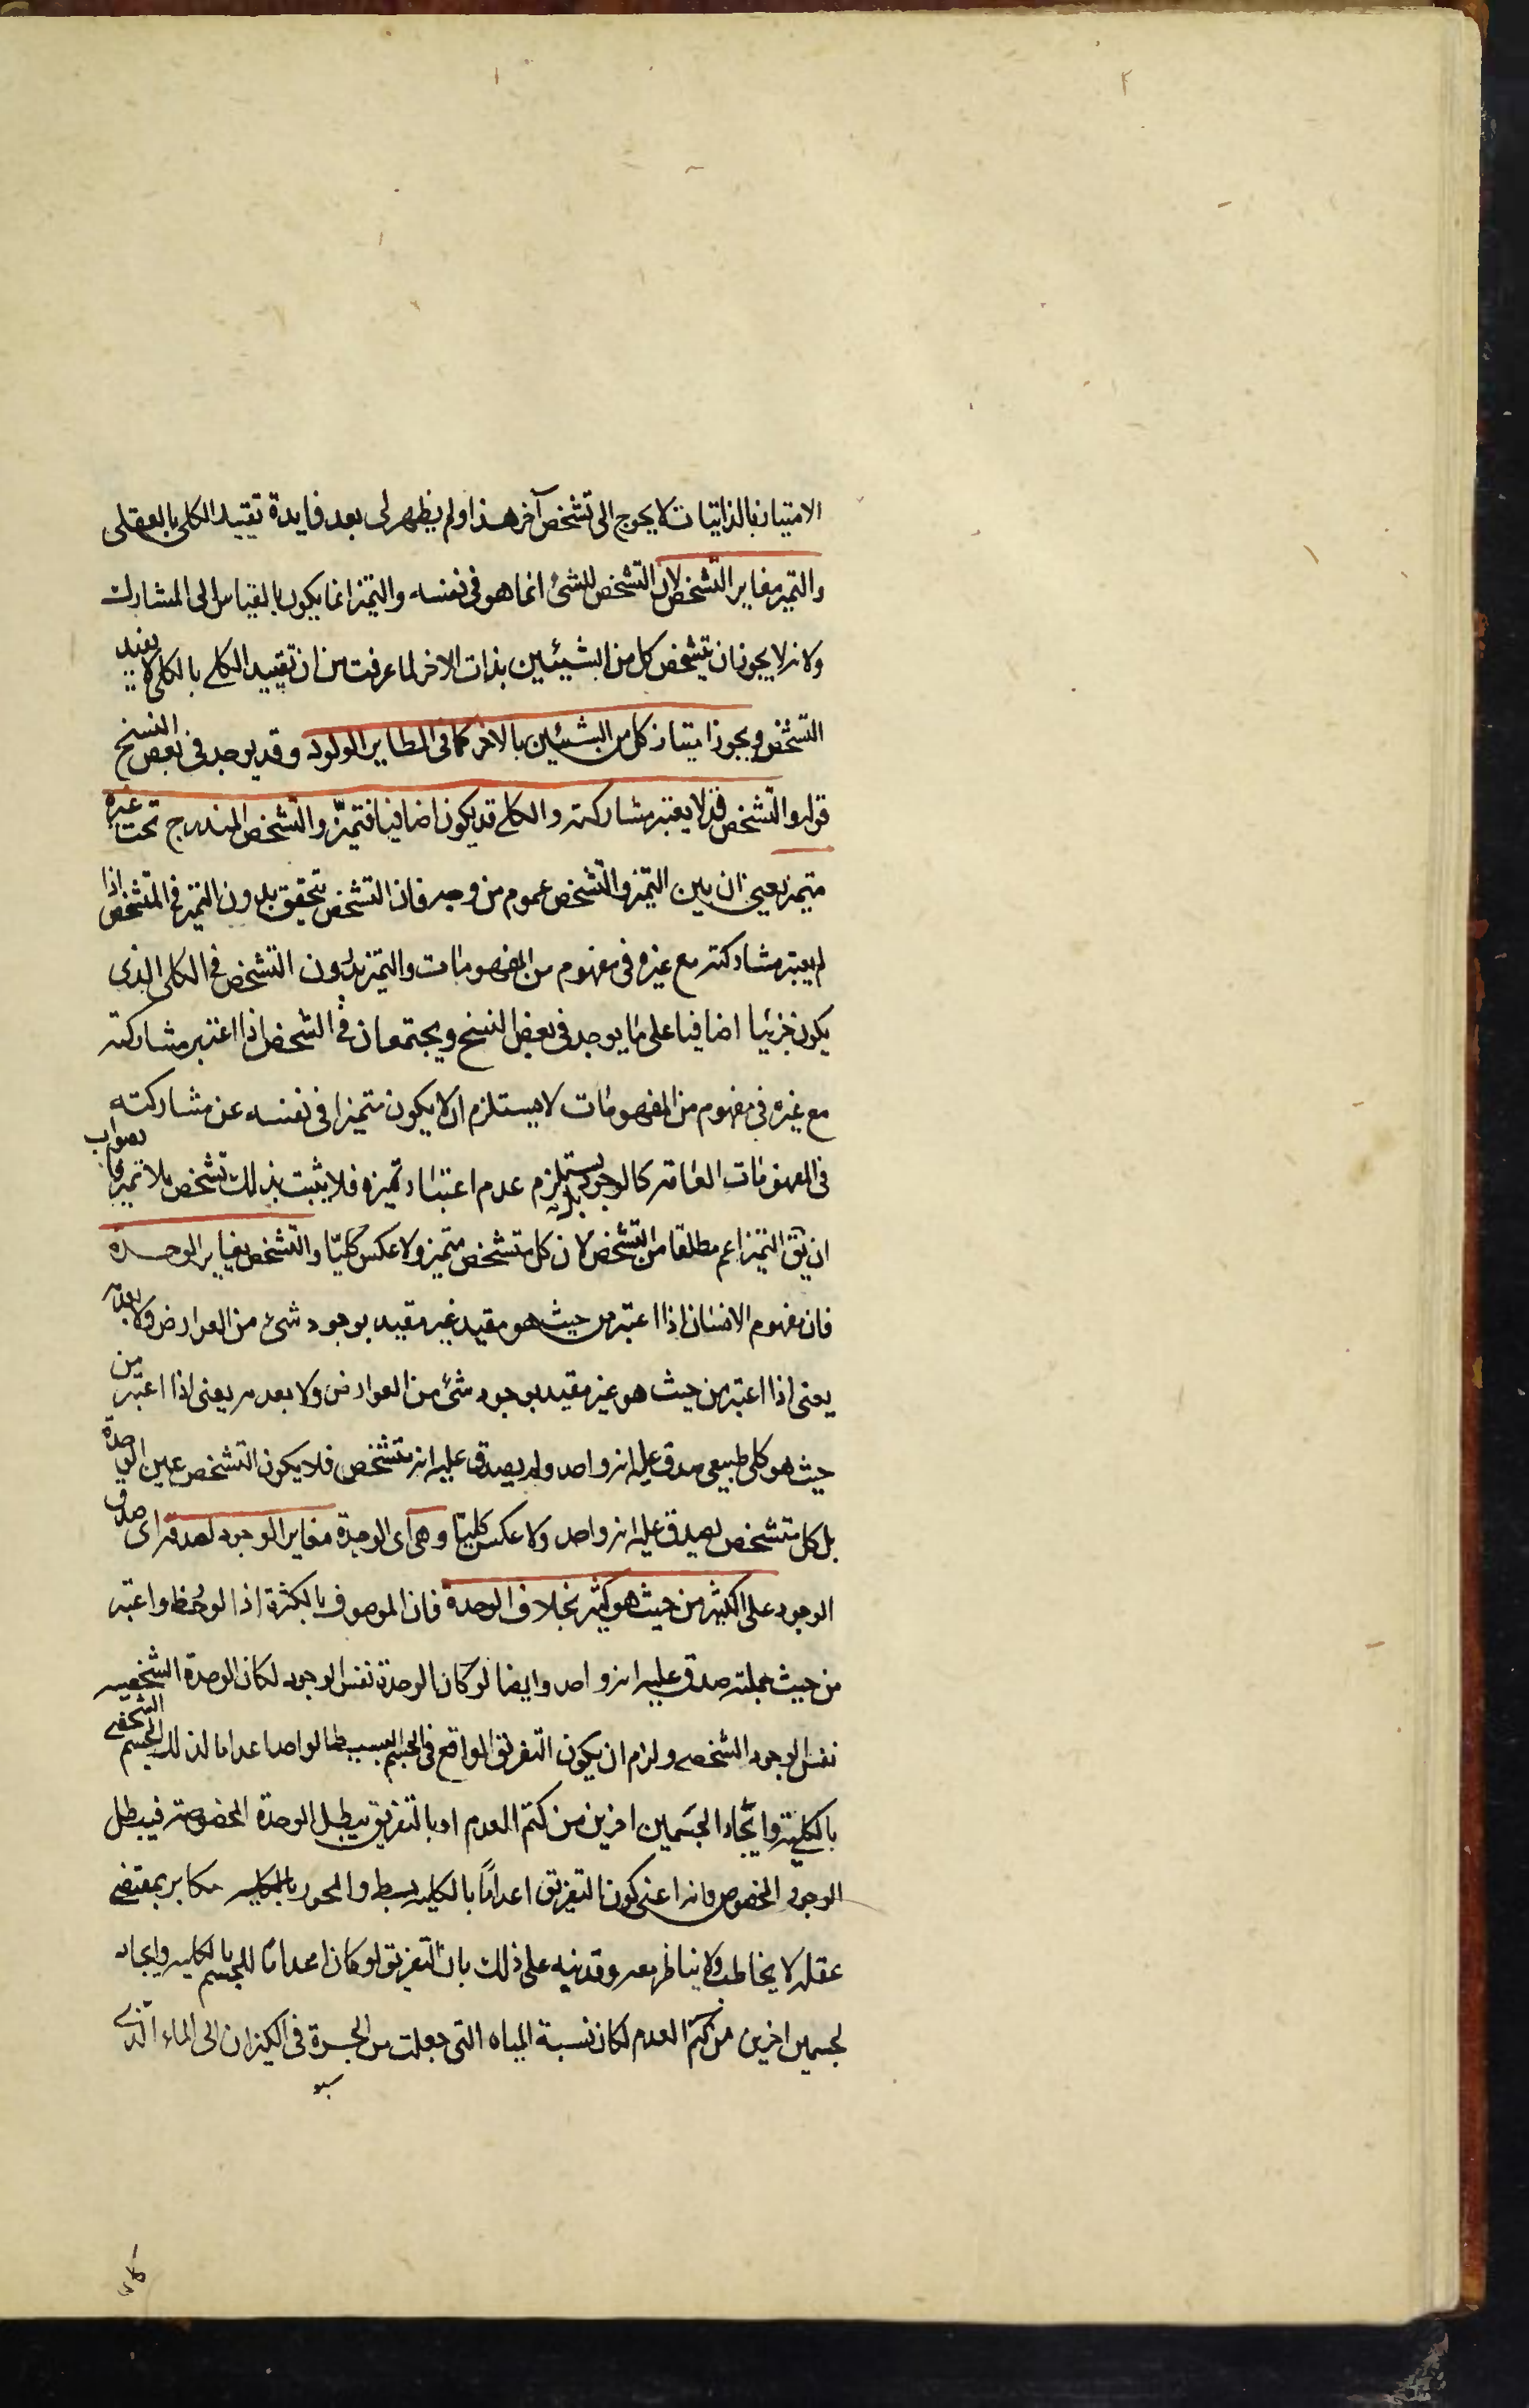 الامتياز بالذاتيات لا يحوج الى تشخص آخر هذا ولم يظهر لى بعد فايدة تقييد الكلى بالعقلى
والتميز مغاير التشخص لان التشخص للشئ انما هو فى نفسه والتميز انما يكون بالقياس الى المشارك
ولانه لا يجوز ان يتشخص كل من الشيئين بذات الاخر لما عرفت من ان تقييد الكلى بالكلى لا يفيد
التشخص ويجوز امتياز كل من الشيئين بالاخر كما فى الطاير الولود وقد يوجد فى بعض النسخ
قوله والتشخص قد لا يعتبر مشاركته والكلى قد يكون اضافيا فتميز والتشخص المندرج تحت غيره
متميز يعنى ان بين التميز والتشخص عموم من وجه فان التشخص يتحقق بدون التميز فى المتشخص اذا
لم يعتبر مشاركته مع غيره فى مفهوم من المفهومات والتميز بدون التشخص فى الكلى الذى
يكون جزئيا اضافيا على ما يوجد فى بعض النسخ ويجتمعان فى الشخص اذا اعتبر مشاركته
مع غيره فى مفهوم من المفهومات لا يستلزم ان لا يكون متميزا فى نفسه عن مشاركته
فى المفهومات العامة كالوجود بل يستلزم عدم اعتبار تميزه فلا يثبت بذلك تشخص بلا تميز فالصواب
ان يق التميز اعم مطلقا من التشخص لان كل متشخص متميز ولا عكس كليا والتشخص يغاير الوحدة
فان مفهوم الانسان اذا اعتبر من حيث هو مقيد غير مقيد بوجود شئ من العوارض ولا بعدمه
يعنى اذا اعتبر من حيث هو غير مقيد بوجود شئ من العوارض ولا بعدمه يعنى اذا اعتبر من
حيث هو كلى طبيعى صدق عليه انه واحد ولم يصدق عليه انه متشخص فلا يكون التشخص عين الوحدة
بل كل متشخص يصدق عليه انه واحد ولا عكس كليا وهى اى الوحدة مغاير الوجود لصدقه اى صدق
الوجود على الكثير من حيث هو كثير بخلاف الوحدة فان الموصوف بالكثرة اذا لوحظ واعتبر
من حيث جملته صدق عليه انه واحد وايضا لو كان الوحدة نفس الوجود لكان الوحدة الشخصيه
نفس الوجود الشخصى ولزم ان يكون التفريق الواقع فى الجسم البسيط الواحد اعداما لذلك الجسم الشخصى
بالكلية وايجاد الجسمين اخرين من كتم العدم اذ بالتفريق يبطل الوحدة المخصوصة فيبطل
الوجود المخصوص وانه اعنى كون التفريق اعداما بالكليه والمجوز مكابر بمقتضى
عقله لا يخاطب ولا يناظر معه وقد نبه على ذلك بان التفريق لو كان اعداما للجسم بالكليه وايجاد
لجسمين اخرين من كتم العدم لكان نسبة المياه التى جعلت من الجرة فى الكيزان الى الماء الذى